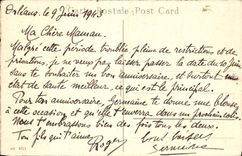 Carte Postale Post Card
Orléans le 9 Juin 1943
Ma Chère Maman.
Malgré cette période troublée pleine de restrictions et de
privations, je ne veux pas laisser passer la date du 10 Juin
sans te souhaiter un bon anniversaire, et surtout un
état de santé meilleur, ce qui est le principal.
Pour ton anniversaire, Germaine te donne une blouse
à cette occasion et qu'elle t'enverra dans un prochain colis.
Nous t'embrassons bien des fois tous les deux.
Ton fils qui t'aime
Tout baisers
Roger
Germaine